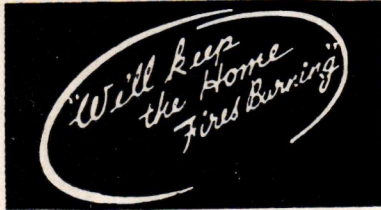 "We'll keep
the Home
Fires Burning"